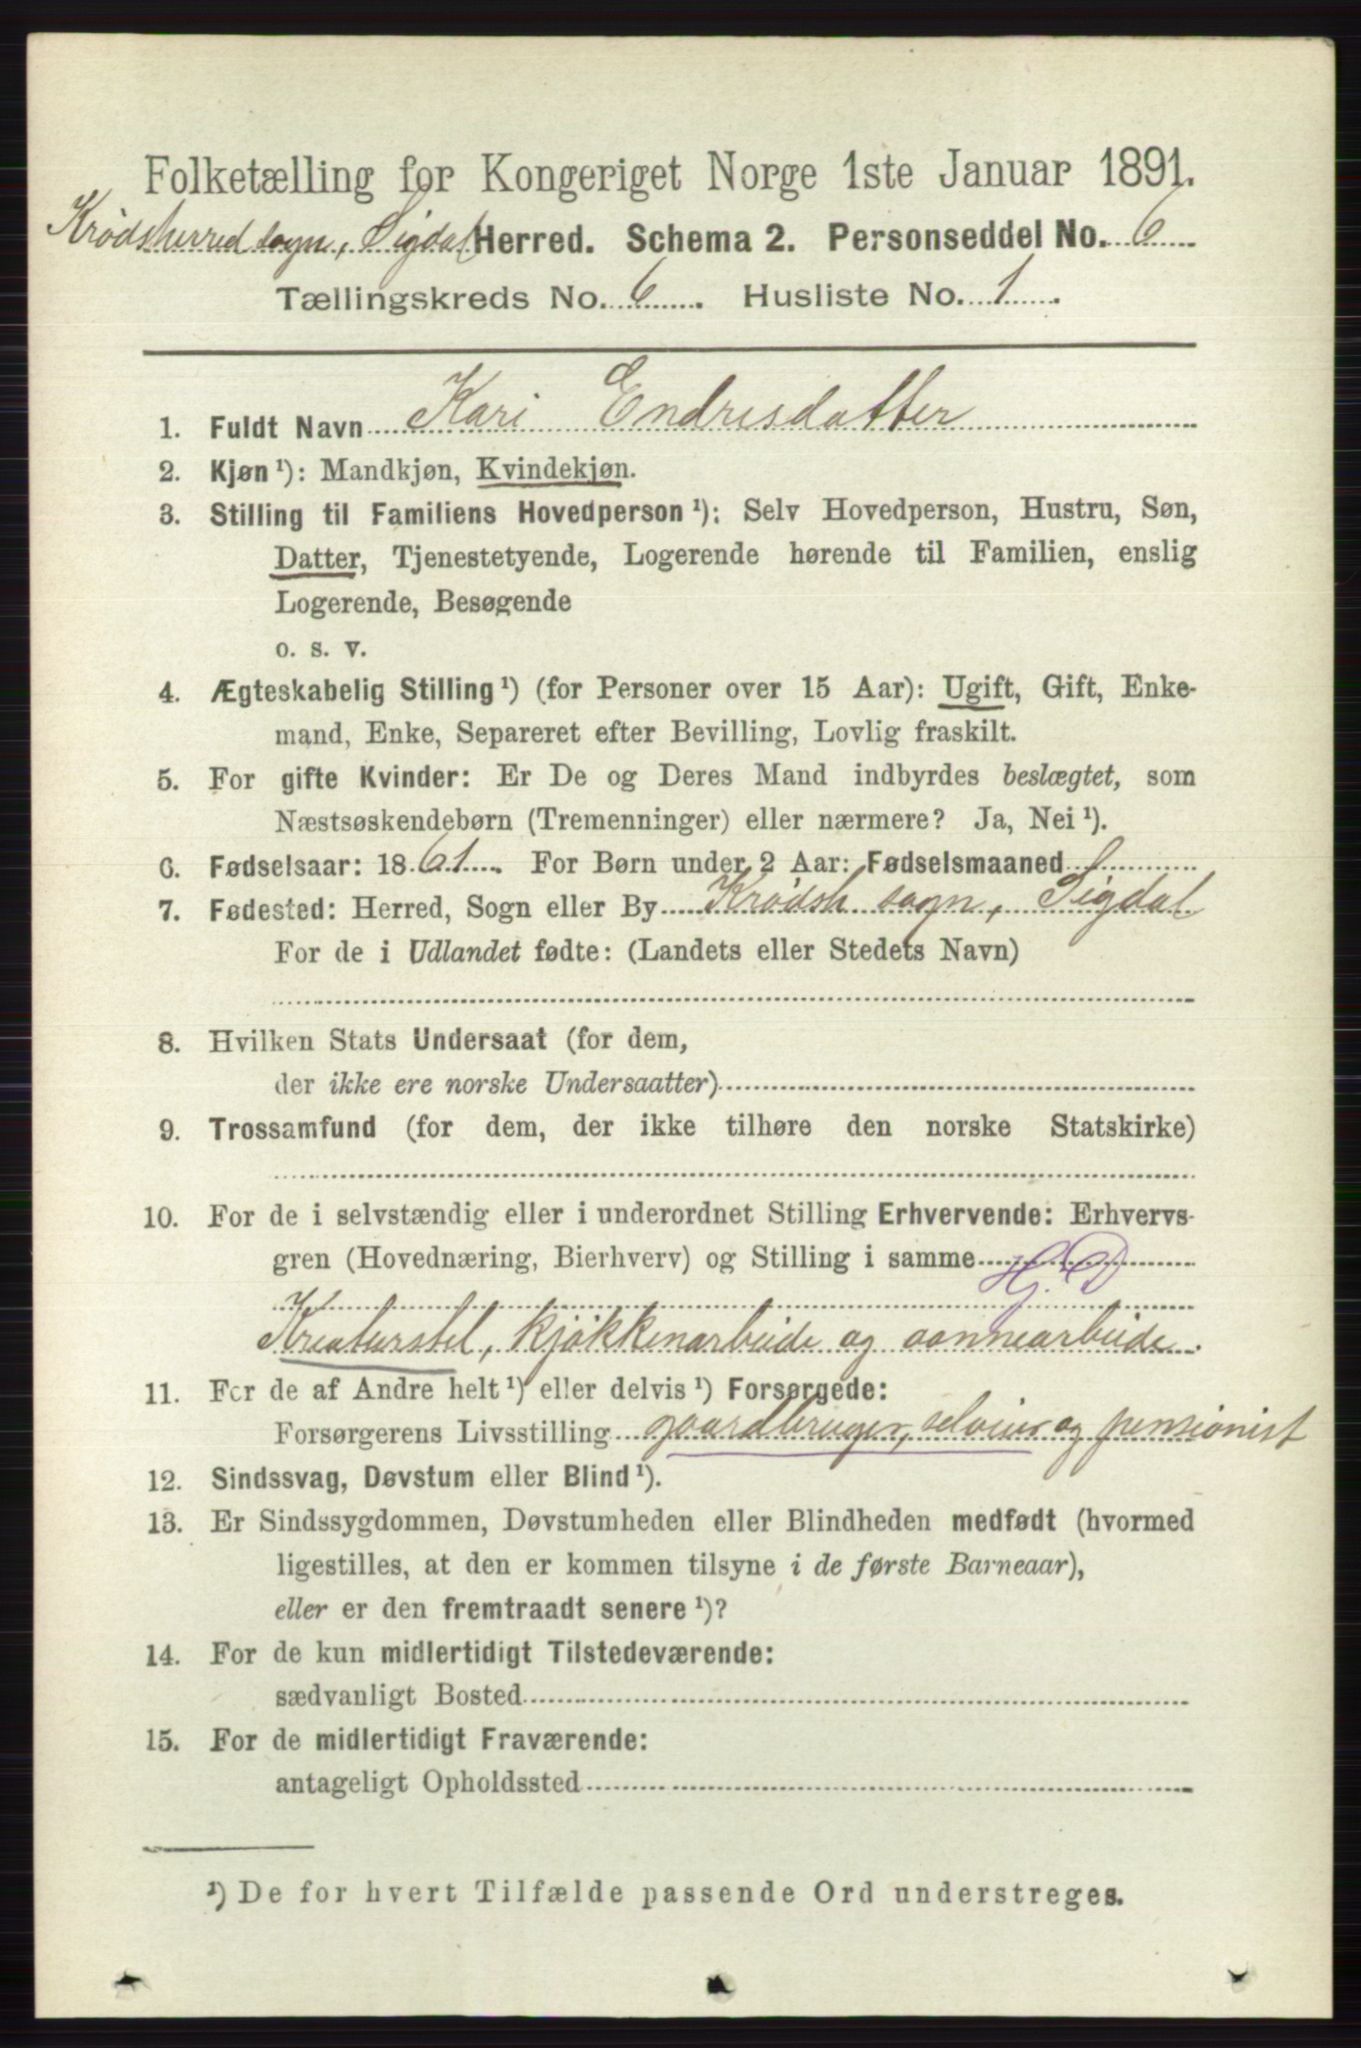 Folketælling for Kongeriget Norge 1ste Januar 1891.
Krødsherred sogn, Sigdal Herred. Schema 2. Personseddel No. 6
Tællingskreds No. 6. Husliste No. 1.
1. Fuldt Navn Kari Endrisdatter
2. Kjøn ¹): Mandkjøn, Kvindekjøn.
3. Stilling til Familiens Hovedperson ¹): Selv Hovedperson, Hustru, Søn,
Datter, Tjenestetyende, Logerende hørende til Familien, enslig
Logerende, Besøgende
o. s. v.
4. Ægteskabelig Stilling ¹) (for Personer over 15 Aar): Ugift, Gift, Enke-
mand, Enke, Separeret efter Bevilling, Lovlig fraskilt.
5. For gifte Kvinder: Er De og Deres Mand indbyrdes beslægtet, som
Næstsøskendebørn (Tremenninger) eller nærmere? Ja, Nei ¹).
6. Fødselsaar: 1861. For Børn under 2 Aar: Fødselsmaaned
7. Fødested: Herred, Sogn eller By Krødsh sogn, Sigdal
For de i Udlandet fødte: (Landets eller Stedets Navn)
8. Hvilken Stats Undersaat (for dem,
der ikke ere norske Undersaatter)
9. Trossamfund (for dem, der ikke tilhøre den norske Statskirke)
10. For de i selvstændig eller i underordnet Stilling Erhvervende: Erhvervs-
gren (Hovednæring, Bierhverv) og Stilling i samme H.D
Kreaturstel, kjøkkenarbeide og aannearbeide.
11. For de af Andre helt ¹) eller delvis ¹) Forsørgede:
Forsørgerens Livsstilling gaardbruger, selveier og pensionist
12. Sindssvag, Døvstum eller Blind ¹).
13. Er Sindssygdommen, Døvstumheden eller Blindheden medfødt (hvormed
ligestilles, at den er kommen tilsyne i de første Barneaar),
eller er den fremtraadt senere ¹)?
14. For de kun midlertidigt Tilstedeværende:
sædvanligt Bosted
15. For de midlertidigt Fraværende:
antageligt Opholdssted
¹) De for hvert Tilfælde passende Ord understreges.